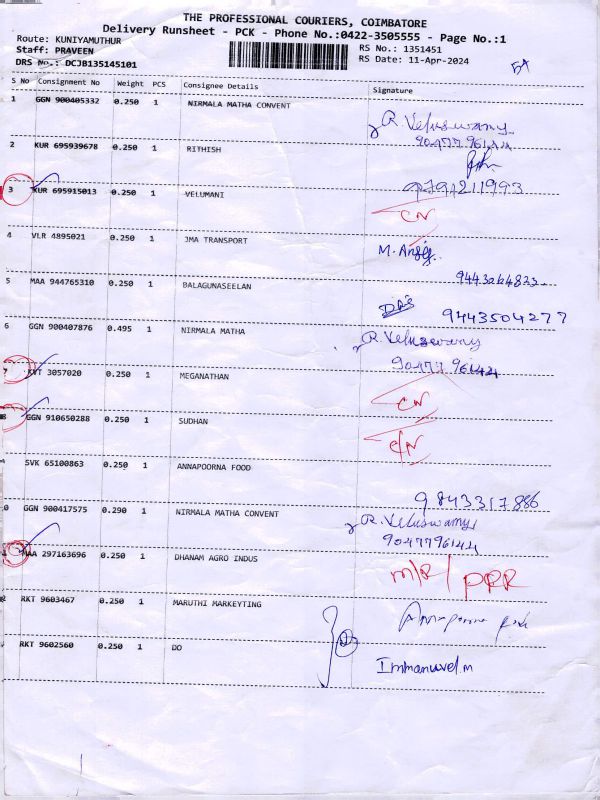 THE PROFESSIONAL COURIERS, COIMBATORE
Delivery Runsheet - PCK - Phone No.:0422-3505555 - Page No.:1
Route: KUNIYAMUTHUR
RS No.: 1351451
Staff: PRAVEEN
RS Date: 11-Apr-2024
DRS No.: DCJB135145101
S No Consignment No Weight PCS Consignee Details Signature
1 GGN 900405332 0.250 1 NIRMALA MATHA CONVENT
R. Veluswamy
9047796144
2 KUR 695939678 0.250 1 RITHISH
9791211993
3 KUR 695915013 0.250 1 VELUMANI
CN
4 VLR 4895021 0.250 1 JMA TRANSPORT
M.
5 MAA 944765310 0.250 1 BALAGUNASEELAN
9443504277
6 GGN 900407876 0.495 1 NIRMALA MATHA
R. Veluswamy
9047796144
7 KVT 3057020 0.250 1 MEGANATHAN
CN
8 GGN 910650288 0.250 1 SUDHAN
C/N
SVK 65100863 0.250 1 ANNAPOORNA FOOD
9843317886
0 GGN 900417575 0.290 1 NIRMALA MATHA CONVENT
R. Veluswamy
9047796144
MAA 297163696 0.250 1 DHANAM AGRO INDUS
M/R / PRR
2 RKT 9603467 0.250 1 MARUTHI MARKEYTING
RKT 9602560 0.250 1 DO
Immanuvel.m